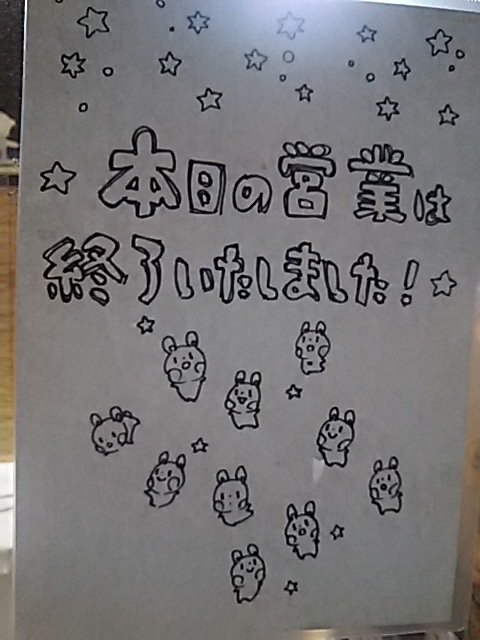 本日の営業は
終了いたしました!